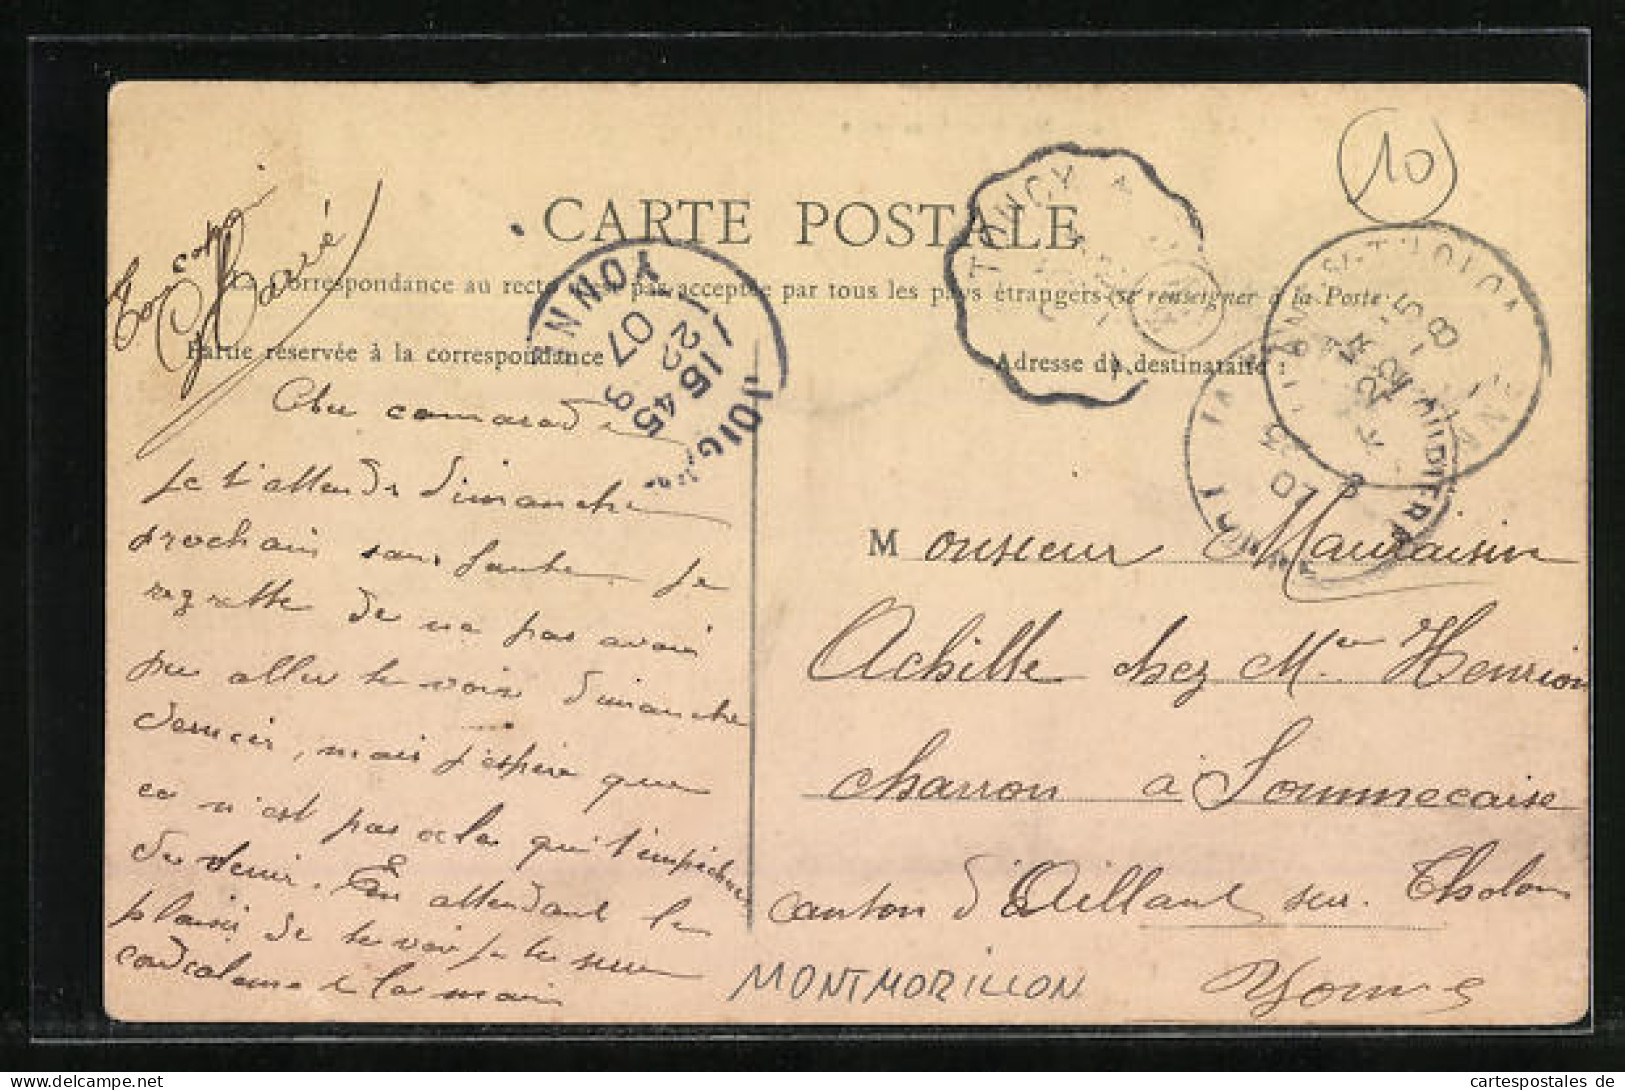 10
CARTE POSTALE
La Correspondance au recto n'est pas acceptée par tous les pays étrangers (se renseigner à la Poste)
Partie réservée à la correspondance
Adresse du destinataire :
Ton copain
Havié
YONNE
JOIG
15 45
22 9
07
TOUCY A
Cher camarade
Je t'attends dimanche
prochain sans faute. Je
regrette de ne pas avoir
pu aller te voir dimanche
dernier, mais j'espère que
ce n'est pas cela qui t'empêchera
de venir. En attendant le
plaisir de te voir je te serre
cordialement la main
Monsieur
Achille chez Mr Henrion
charron à Sommecaise
canton d'Aillant sur Tholon
Yonne
MONTMORILLON
cartespostales.de